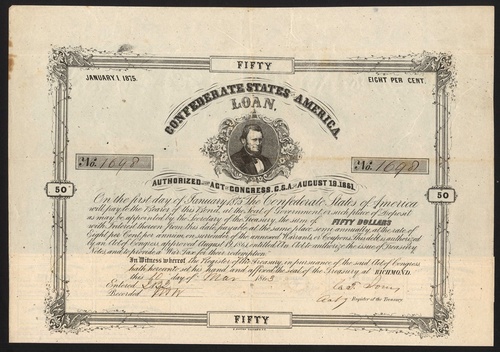 FIFTY
JANUARY 1, 1875.
EIGHT PER CENT.
CONFEDERATE STATES AMERICA.
LOAN.
No. 1698
No. 1698
AUTHORIZED ACT CONGRESS, C.S.A. AUGUST 19, 1861.
50
50
On the first day of January 1875 The Confederate States of America
will pay to the Bearer of this Bond, at the Seal of Government, or such place of Deposit
as may be appointed by the Secretary of the Treasury, the sum of FIFTY DOLLARS
with Interest thereon from this date, payable at the same place, semi annually, at the rate of
Eight per Cent per annum, on surrender of the annexed Warrants or Coupons. This debt is authorized
by an Act of Congress approved August 19, 1861, entitled An Act to authorize the issue of Treasury
Notes, and to provide a War Tax for their redemption.
In Witness whereof the Register of the Treasury, in pursuance of the said Act of Congress
hath hereunto set his hand and affixed the seal of the Treasury, at RICHMOND.
this day of Mar 1863
Entered
Recorded
Register of the Treasury.
FIFTY